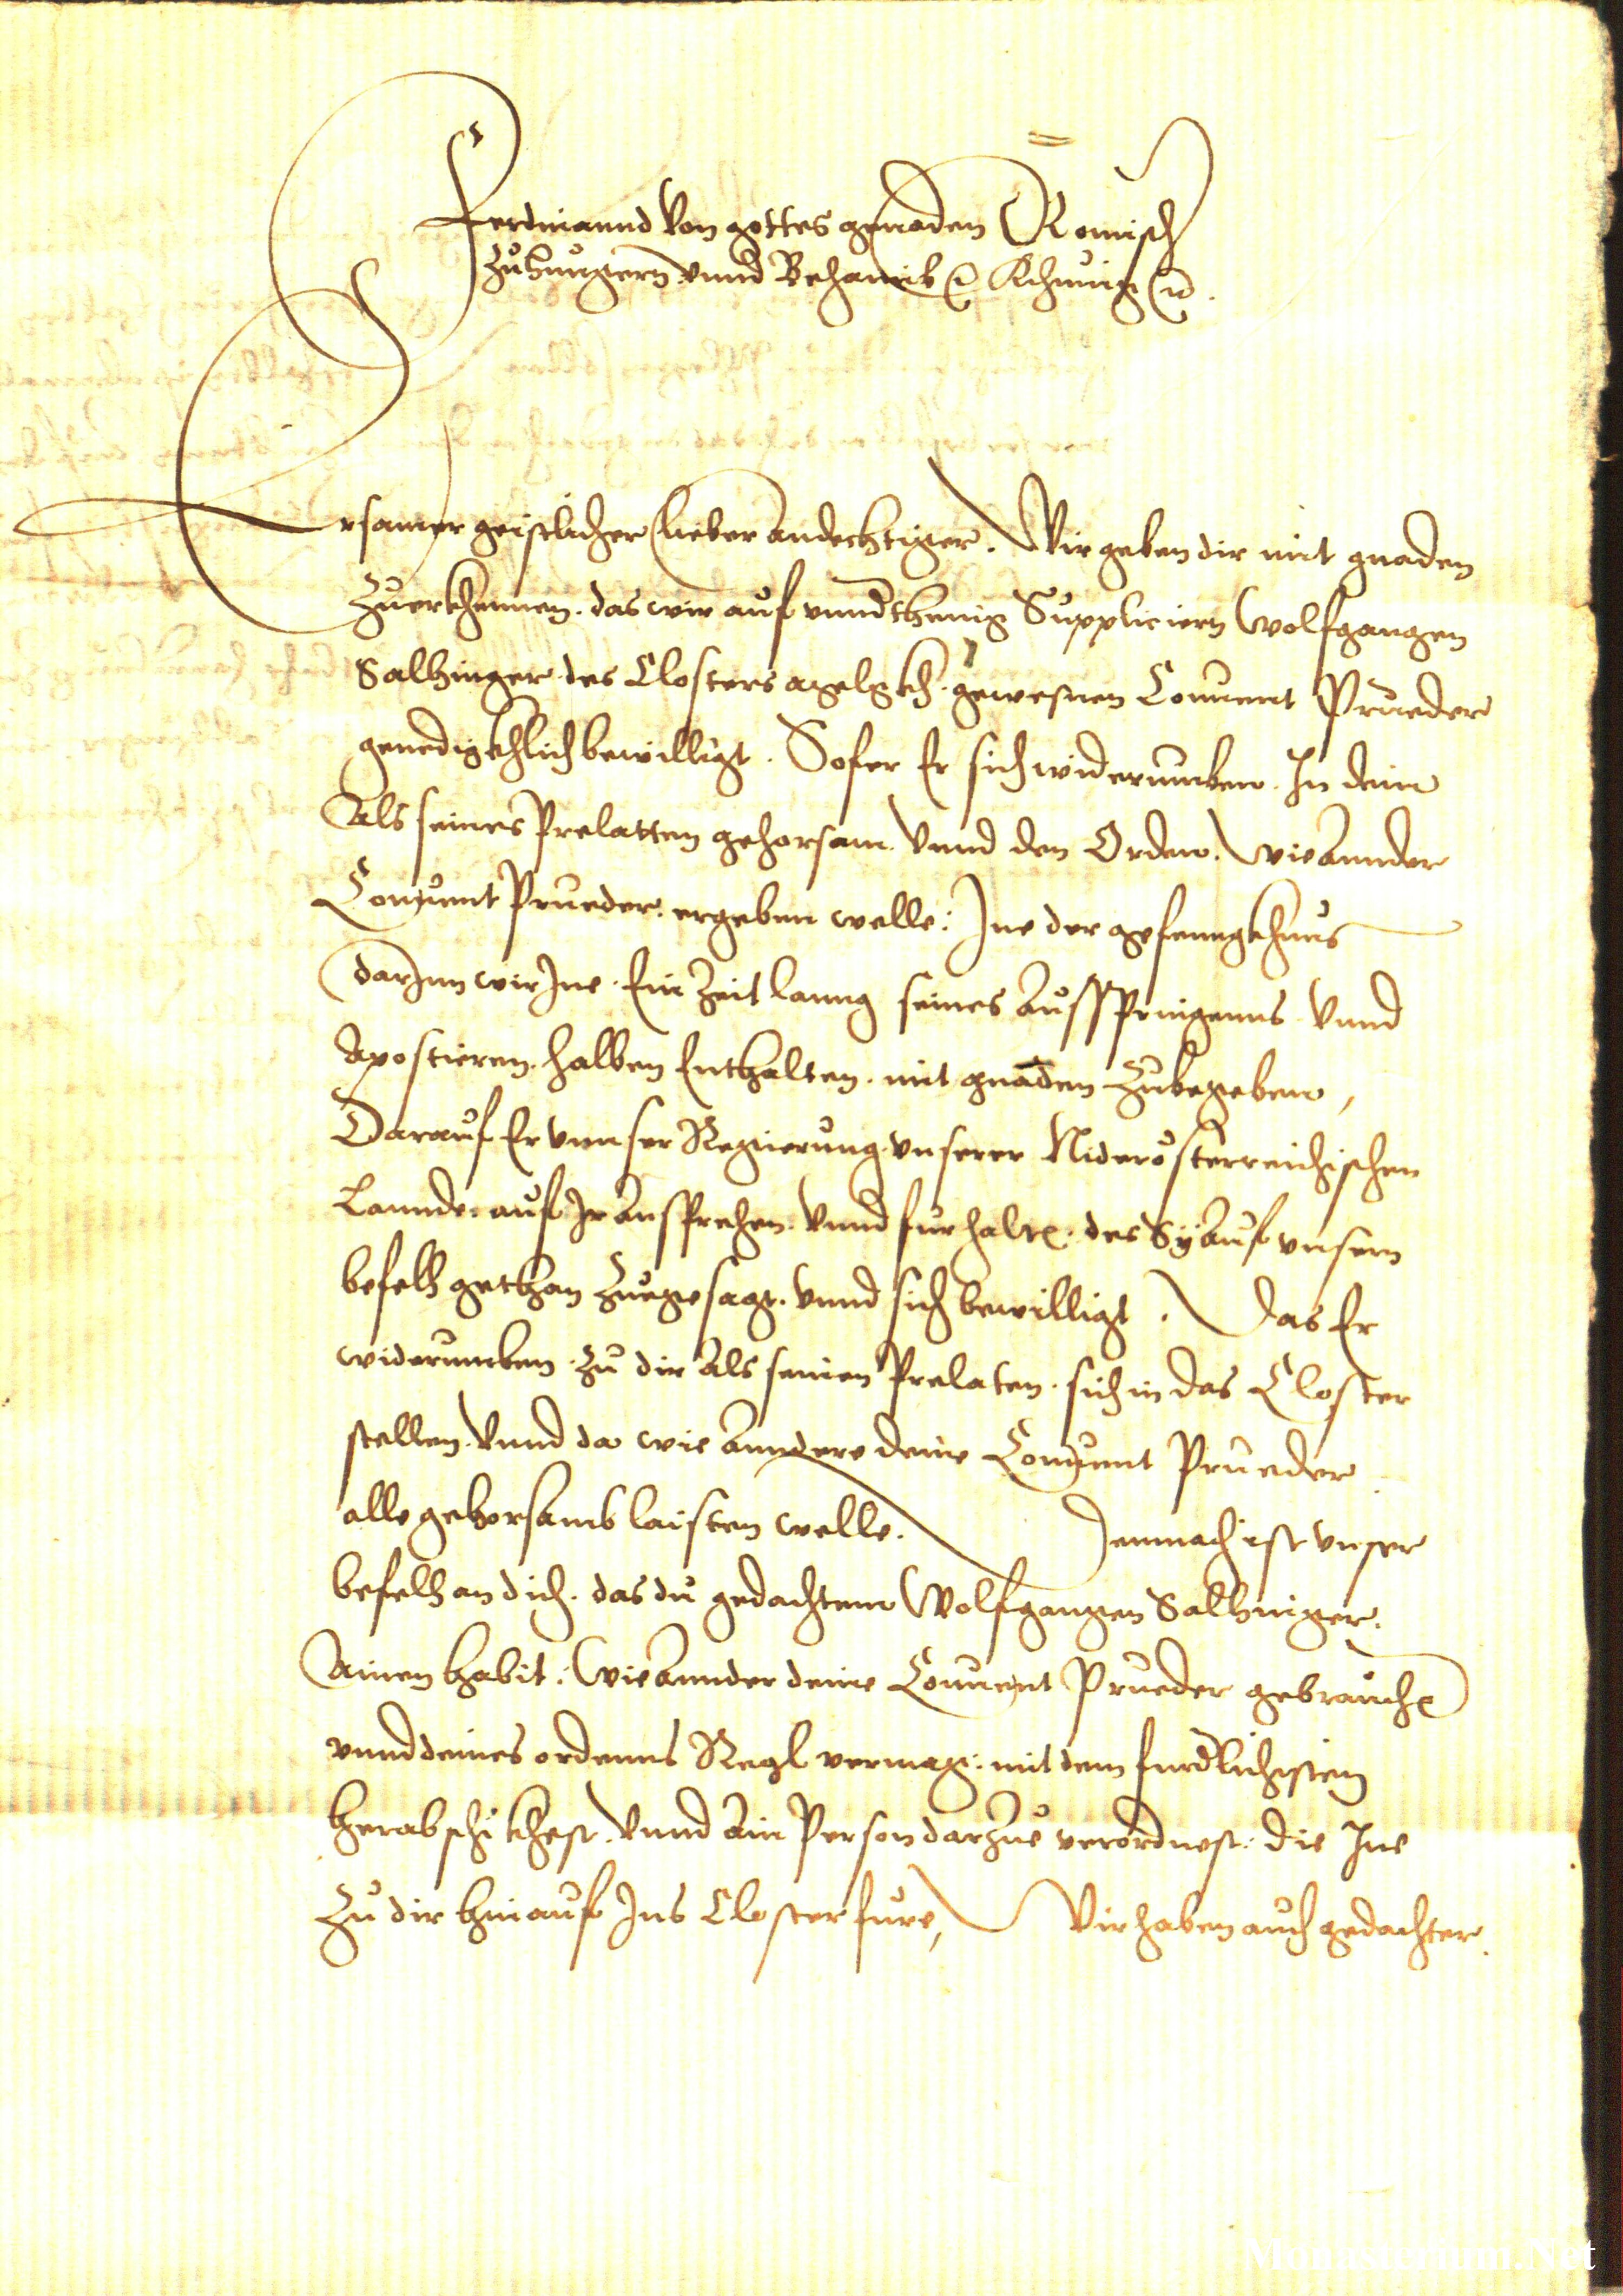 Ferdinannd von gottes gnaden Romisch
zu Hungern vnnd Behaimb Khunig
Ersamer geistlicher lieber andechtiger. Wir geben dir mit gnaden
zuerkhennen. das wir auf vnnderthenig Suppliciern Wolfgangen
Salhinger des Closters gewesnen Conuent Prueder
genedigkhlich bewilligt. Sofer Er sich widerumben. In dein
Als seines Prelatten gehorsam. Vnnd den Orden. wie annder
Conuent Prueder. ergeben welle: Ine der gefenngkhnus
darInn wir Ine. Ein Zeit lanng seines Ausspringenns Vnnd
Apostieren. halben Enthalten. mit gnaden Zubegeben,
Darauf Er vnnser Regierung vnserer Niderösterreichischen
Lannde. auf Ir Ansprechen. Vnnd furhalten. des Sÿ Auf vnsern
befelh gethan Zuegesagt. Vnnd sich bewilligt. Das Er
widerumben. Zu dir Als seinen Prelaten. sich in das Closter
stellen. Vnnd da wie anndere deine Conuent Prueder
alle gehorsamb laisten welle. Demnach ist Vnser
befelh an dich. das du gedachtem Wolfgangen Salhinger.
Ainen habit. Wie Annder deine Conuent Prueder gebrauchen
vnnd deines ordenns Regl vermag. mit dem furderlichisten
herabschikhest. Vnnd Ain Person darzue verordnest. die Ine
Zu dir hinauf Ins Closter fure, Wir haben auch gedachter
Monasterium.Net